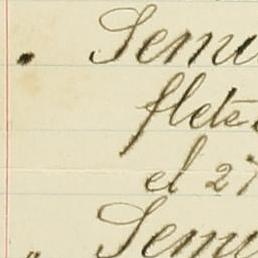 Semi
flete
el 27
Semi